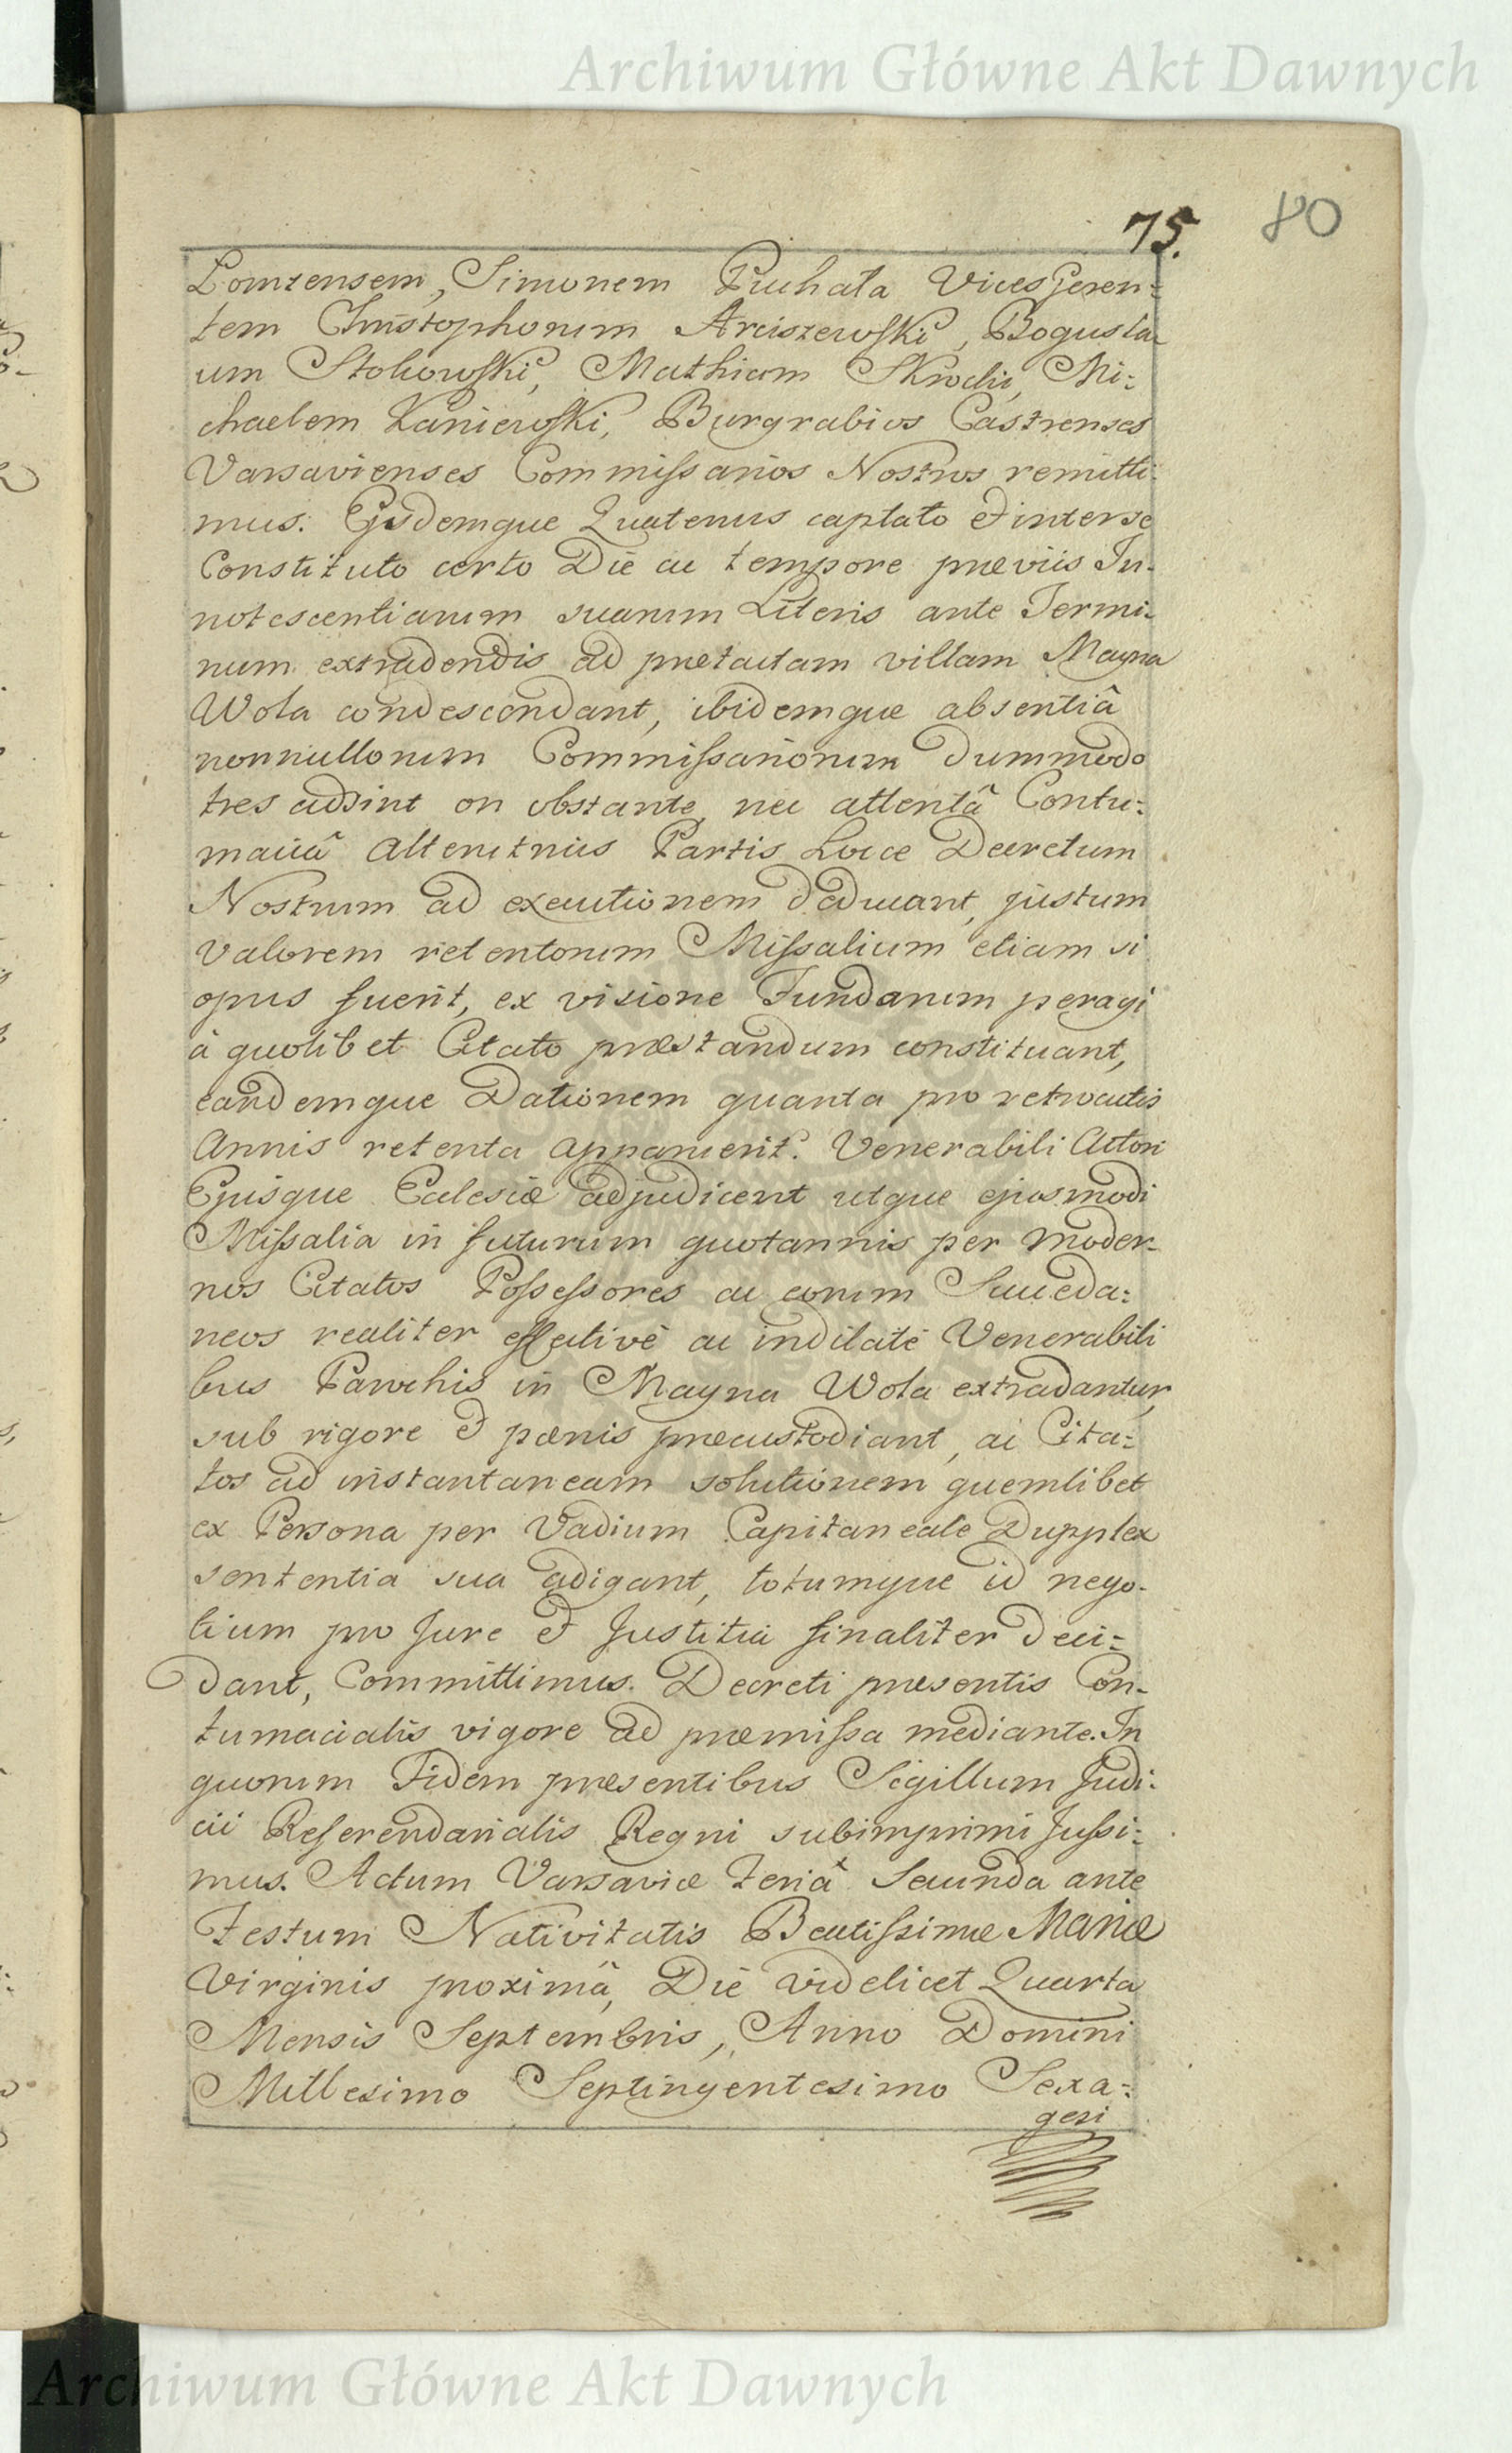 Archiwum Główne Akt Dawnych
75. 80
Lomzensem, Simonem Puchała Vices Geren-
tem Christophorum Arciszewski, Bogusla
um Stokowski, Mathiam Skrodzi, Mi-
chaelem Kaniewski, Burgrabios Castrenses
Varsavienses Commissarios Nostros remitti-
mus. Ejsdemque Quatenus captato et inter se
Constituto certo Die ac tempore præviis In-
notescentiarum suarum Literis ante Termi-
num extradendis ad prætactam villam Magna
Wola condescendant, ibidemque absentiâ
nonnullorum Commissariorum dummodo
tres adsint on obstante, nec attentâ Contu-
maciâ Alterutrius Partis Loice Decretum
Nostrum ad executionem deducant, justum
valorem retentorum Missalium etiam si
opus fuerit, ex visione Fundarum peragi
à quolibet Citato præstandum constituant,
eandemque Dationem quanta pro retroactis
Annis retenta apparuerit. Venerabili Actori
Ejusque Eclesiæ adjudicent utque ejusmodi
Missalia in futurum quotannis per moder-
nos Citatos Possessores ac eorum Succeda-
neos realiter effective ac indilaté Venerabili
bus Parochis in Magna Wola extradantur,
sub rigore et pœnis præcustodiant, ac Cita-
tos ad instantaneam solutionem quemlibet
ex Persona per Vadium Capitaneale Dupplex
sententia sua adigant, totumque id nego-
tium pro Jure et Justitia finaliter deci-
dant, Committimus. Decreti præsentis Con-
tumacialis vigore ad præmissa mediante. In
quorum Fidem præsentibus Sigillum Judi-
cii Referendarialis Regni subimprimi Jussi-
mus. Actum Varsaviæ Feriâ Secunda ante
Festum Nativitatis Beatissimæ Mariæ
Virginis proximâ, Die videlicet Quarta
Mensis Septembris, Anno Domini
Millesimo Septingentesimo Sexa-
gesi
Archiwum Główne Akt Dawnych